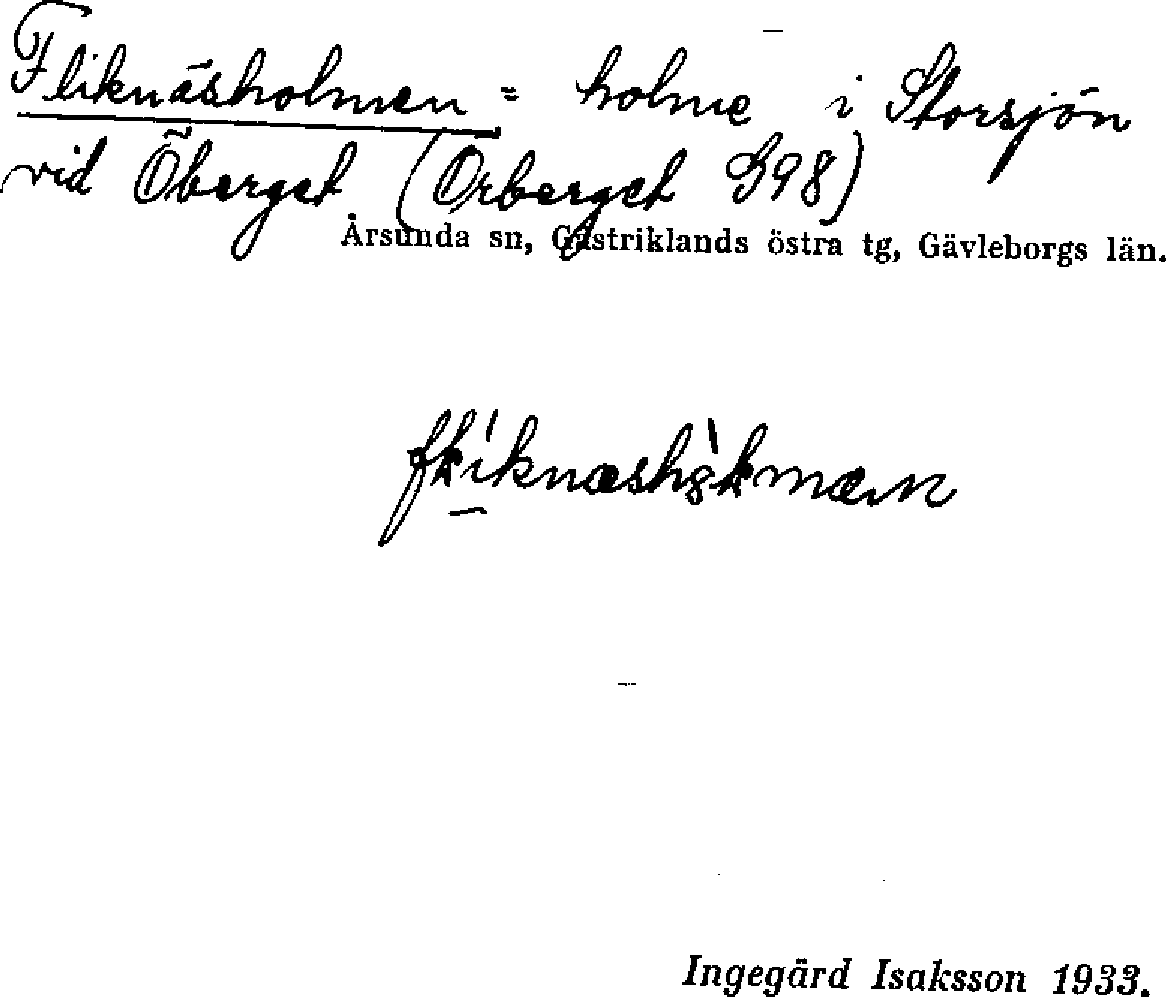 Fliknäsholmen = holme i Storsjön
vid Öberget (Örberget S98)
Årsunda sn, Gästriklands östra tg, Gävleborgs län.
Ingegärd Isaksson 1933.